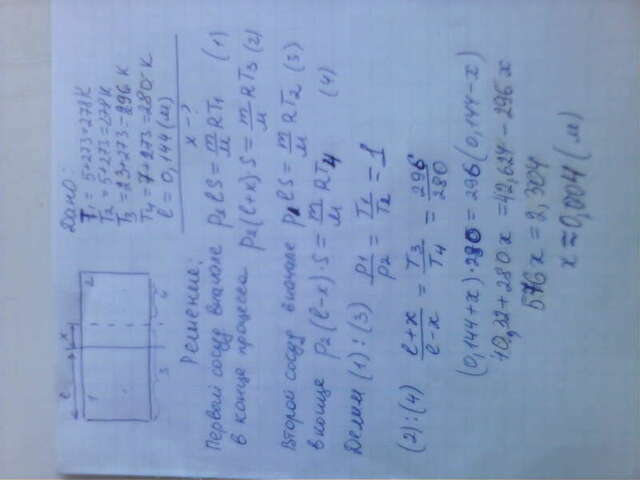 Дано:
T₁ = 5+273=278K
T₂ = 5+273=278K
T₃ = 23+273=296 K
T₄ = 7+273=280 K
l = 0,144 (м)
x - ?
l
x
1
2
3
4
Решение:
Первый сосуд вначале p₁lS = m/M RT₁ (1)
в конце процесса p₂(l+x)S = m/M RT₃ (2)
Второй сосуд вначале p₁lS = m/M RT₂ (3)
в конце p₂(l-x)·S = m/M RT₄ (4)
Делим (1):(3) p₁/p₂ = T₁/T₂ = 1
(2):(4) l+x/l-x = T₃/T₄ = 296/280
(0,144+x)·280 = 296(0,144-x)
40,32+280x = 42,624-296x
576x = 2,304
x ≈ 0,004 (м)